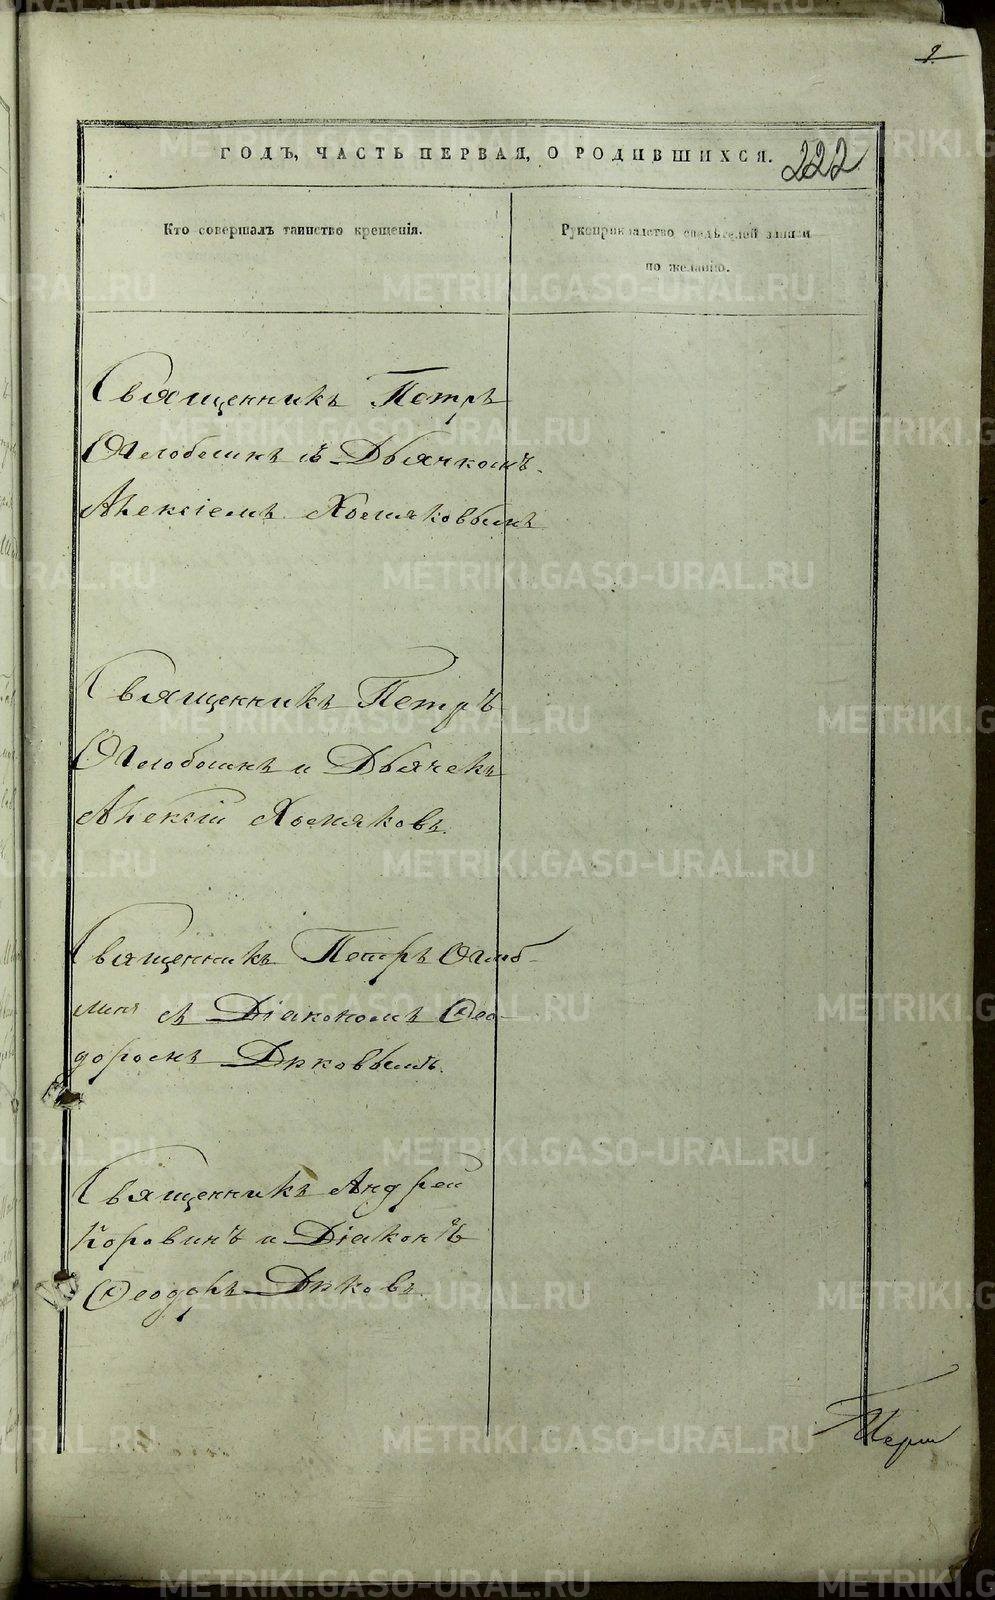 9.
ГОДЪ, ЧАСТЬ ПЕРВАЯ, О РОДИВШИХСЯ.
222
Кто совершалъ таинство крещенія.
Рукоприкладство свидѣтелей записи
по желанію.
Священникъ Петръ
Оглоблинъ съ Дьячкомъ
Алексіемъ Хомяковымъ
Священникъ Петръ
Оглоблинъ и Дьячекъ
Алексій Хомяковъ.
Священникъ Петръ Оглоб-
линъ съ Діакономъ Ѳео-
доромъ Дьковымъ.
Священникъ Андрей
Коровинъ и Діаконъ
Ѳеодоръ Дьковъ.
METRIKI.GASO-URAL.RU